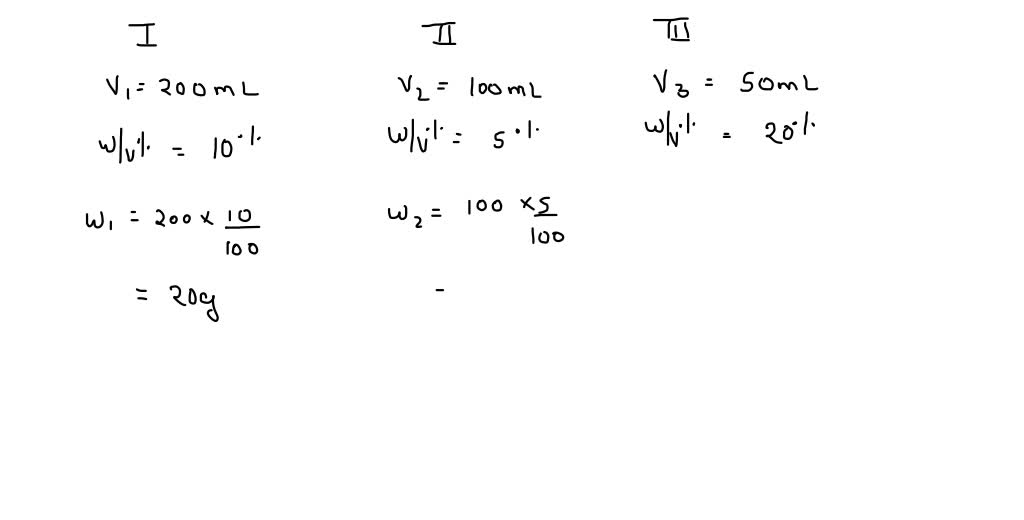 I
V₁ = 200mL
W/V% = 10%
W₁ = 200 × 10/100
= 20g
II
V₂ = 100mL
W/V% = 5%
W₂ = 100 × 5/100
=
III
V₃ = 50mL
W/V% = 20%